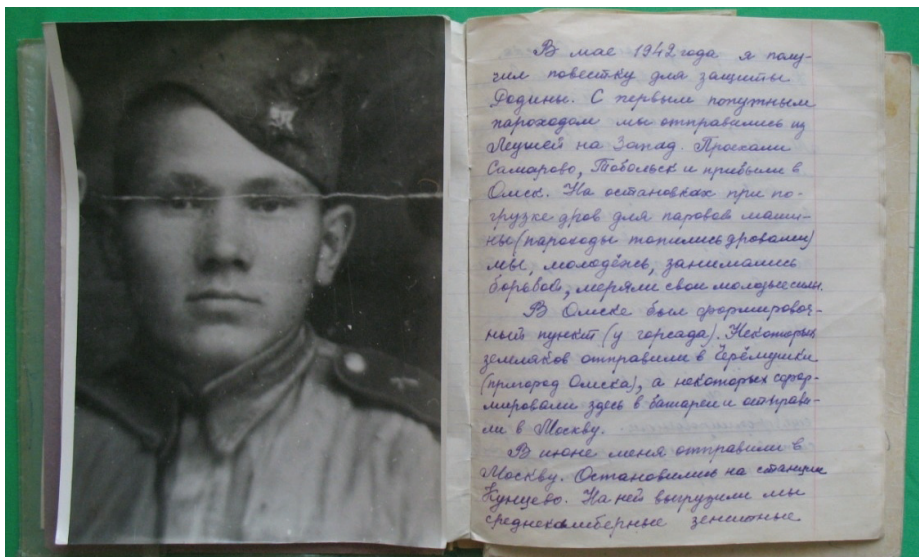 В мае 1942 года я полу-
чил повестку для защиты
Родины. С первым попутным
пароходом мы отправились из
Леушей на Запад. Проехали
Самарово, Тобольск и прибыли в
Омск. На остановках при по-
грузке дров для паровой маши-
ны (пароходы топились дровами)
мы, молодёжь, занимались
борьбой, меряли свои молодые силы.
В Омске был формировоч-
ный пункт (у горсада). Некоторых
земляков отправили в Черёмушки
(пригород Омска), а некоторых сфор-
мировали здесь в батареи и отправи-
ли в Москву.
В июне меня отправили в
Москву. Остановились на станции
Кунцево. На ней выгрузили мы
среднекалиберные зенитные